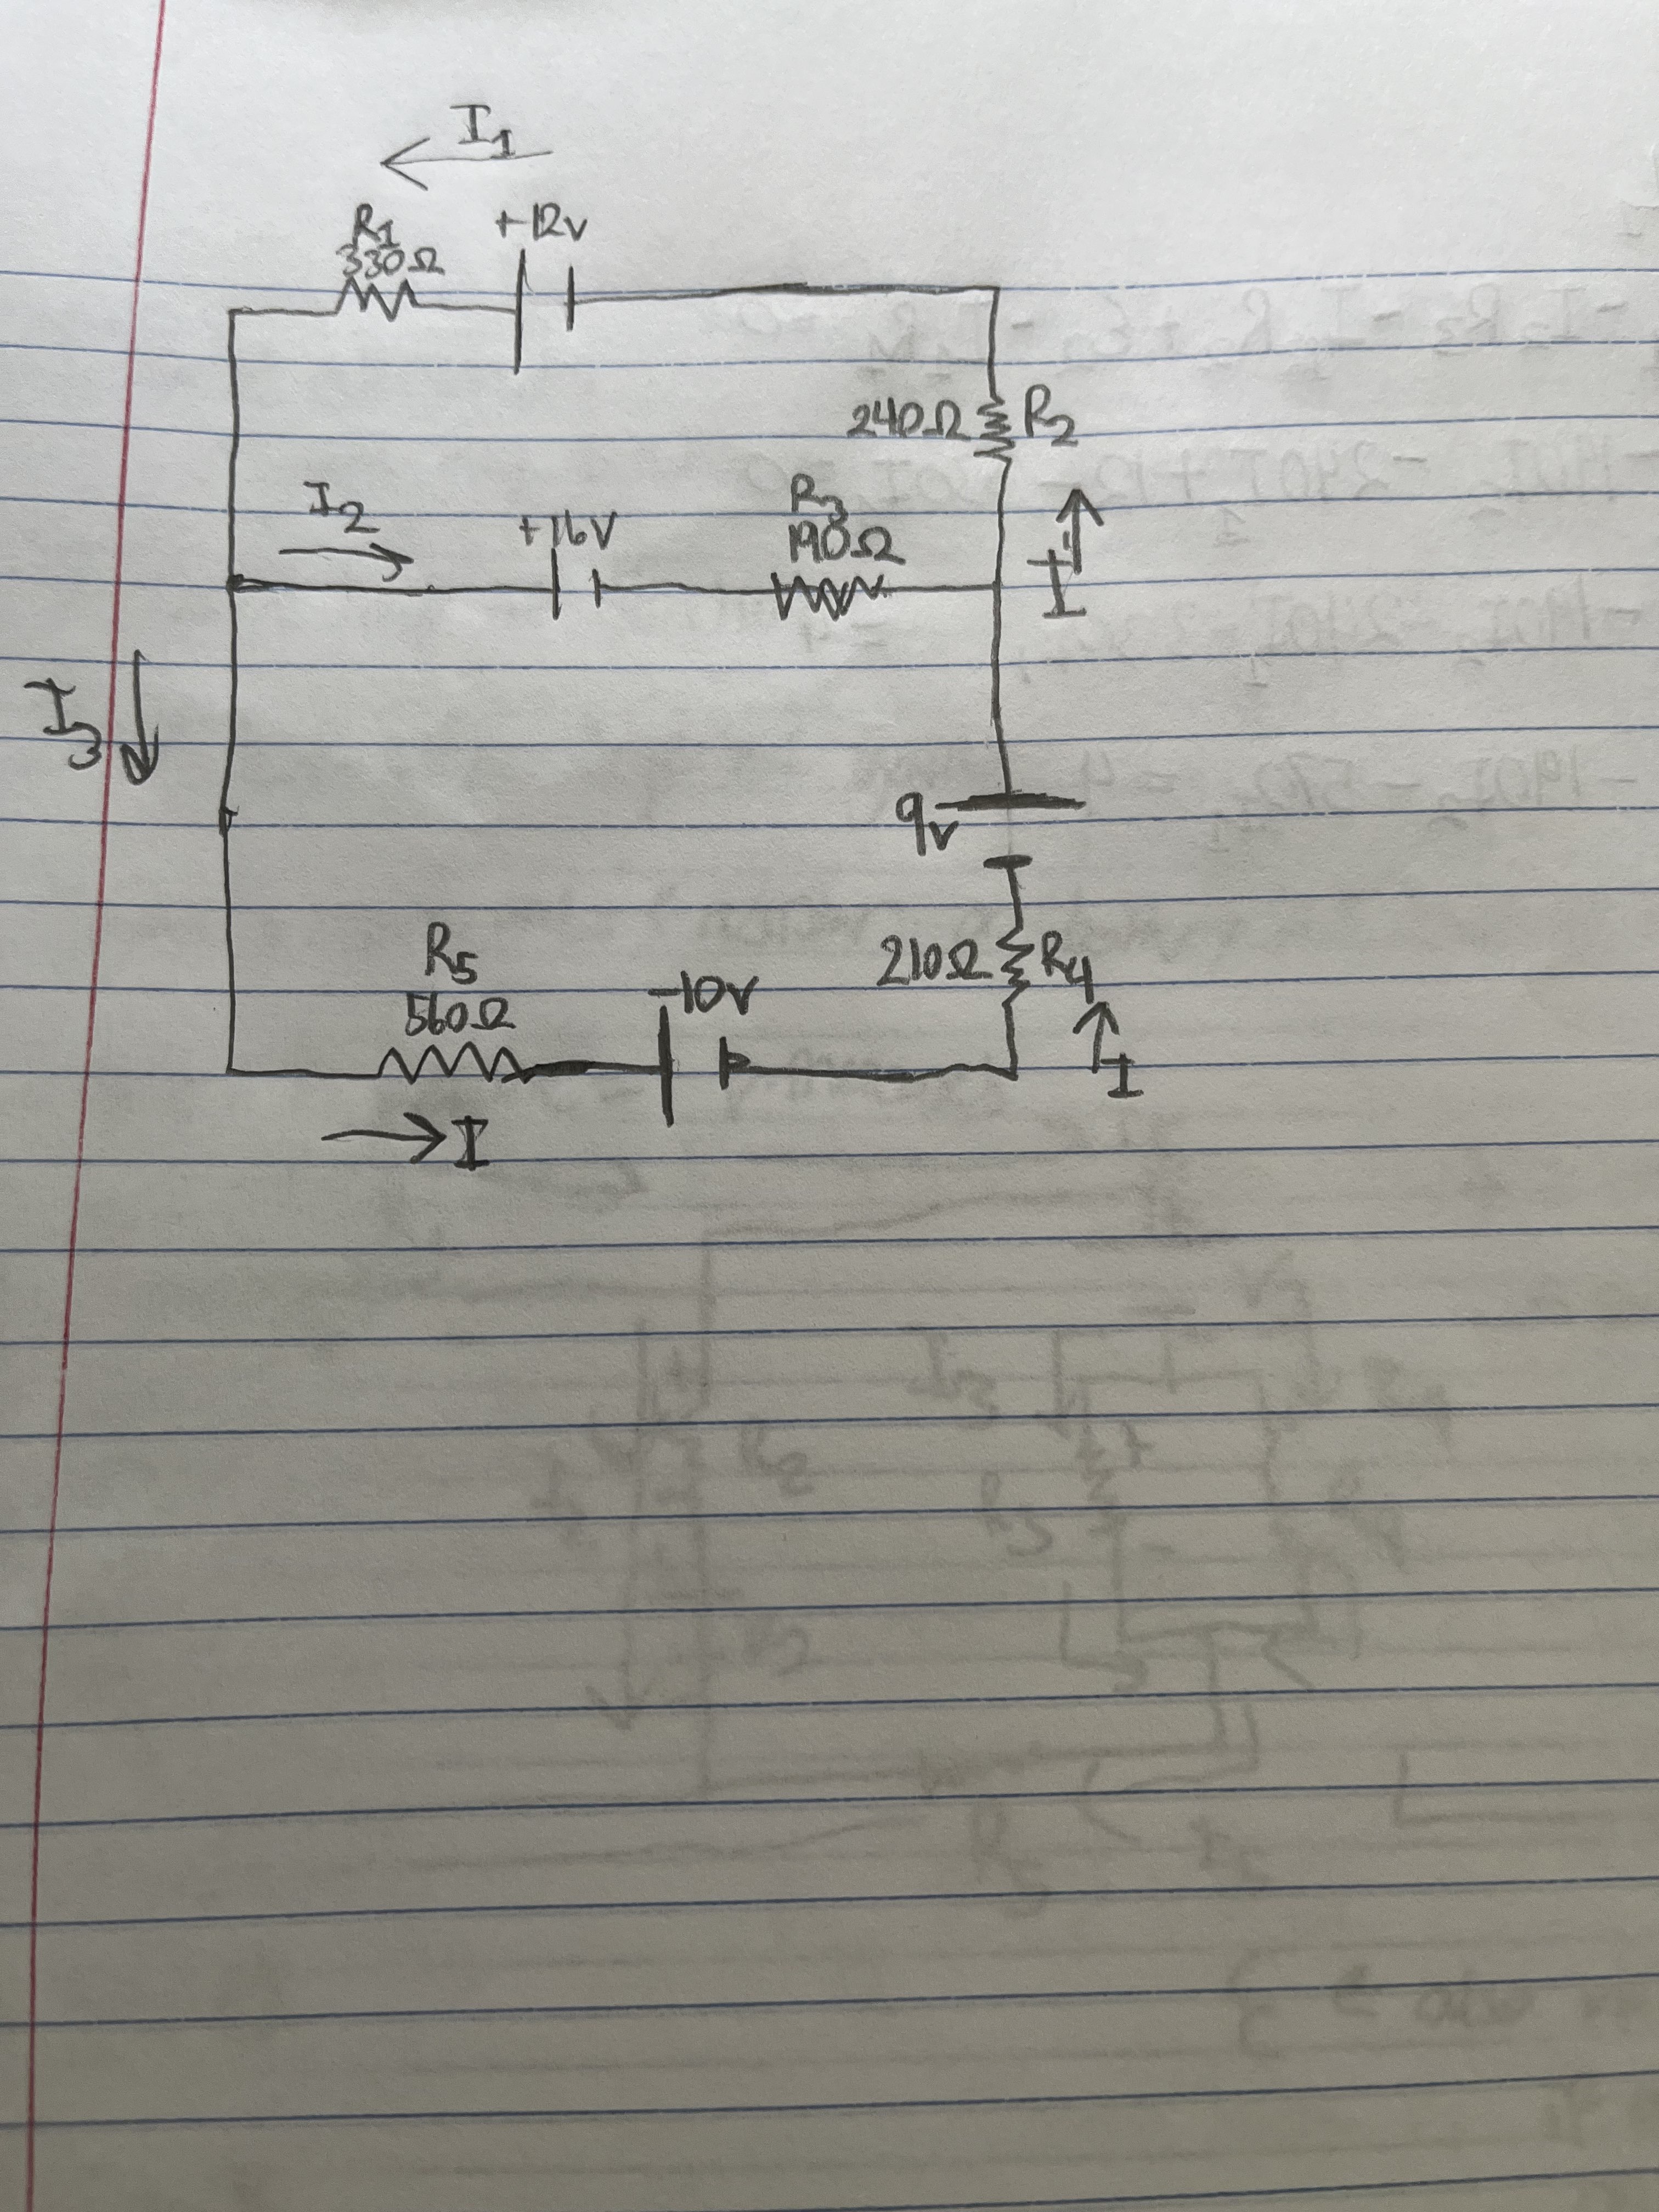 I1
R1
330Ω
+12v
240Ω R2
I2
+16V
R3
190Ω
I1
I3
9v
R5
560Ω
-10v
210Ω R4
I
I